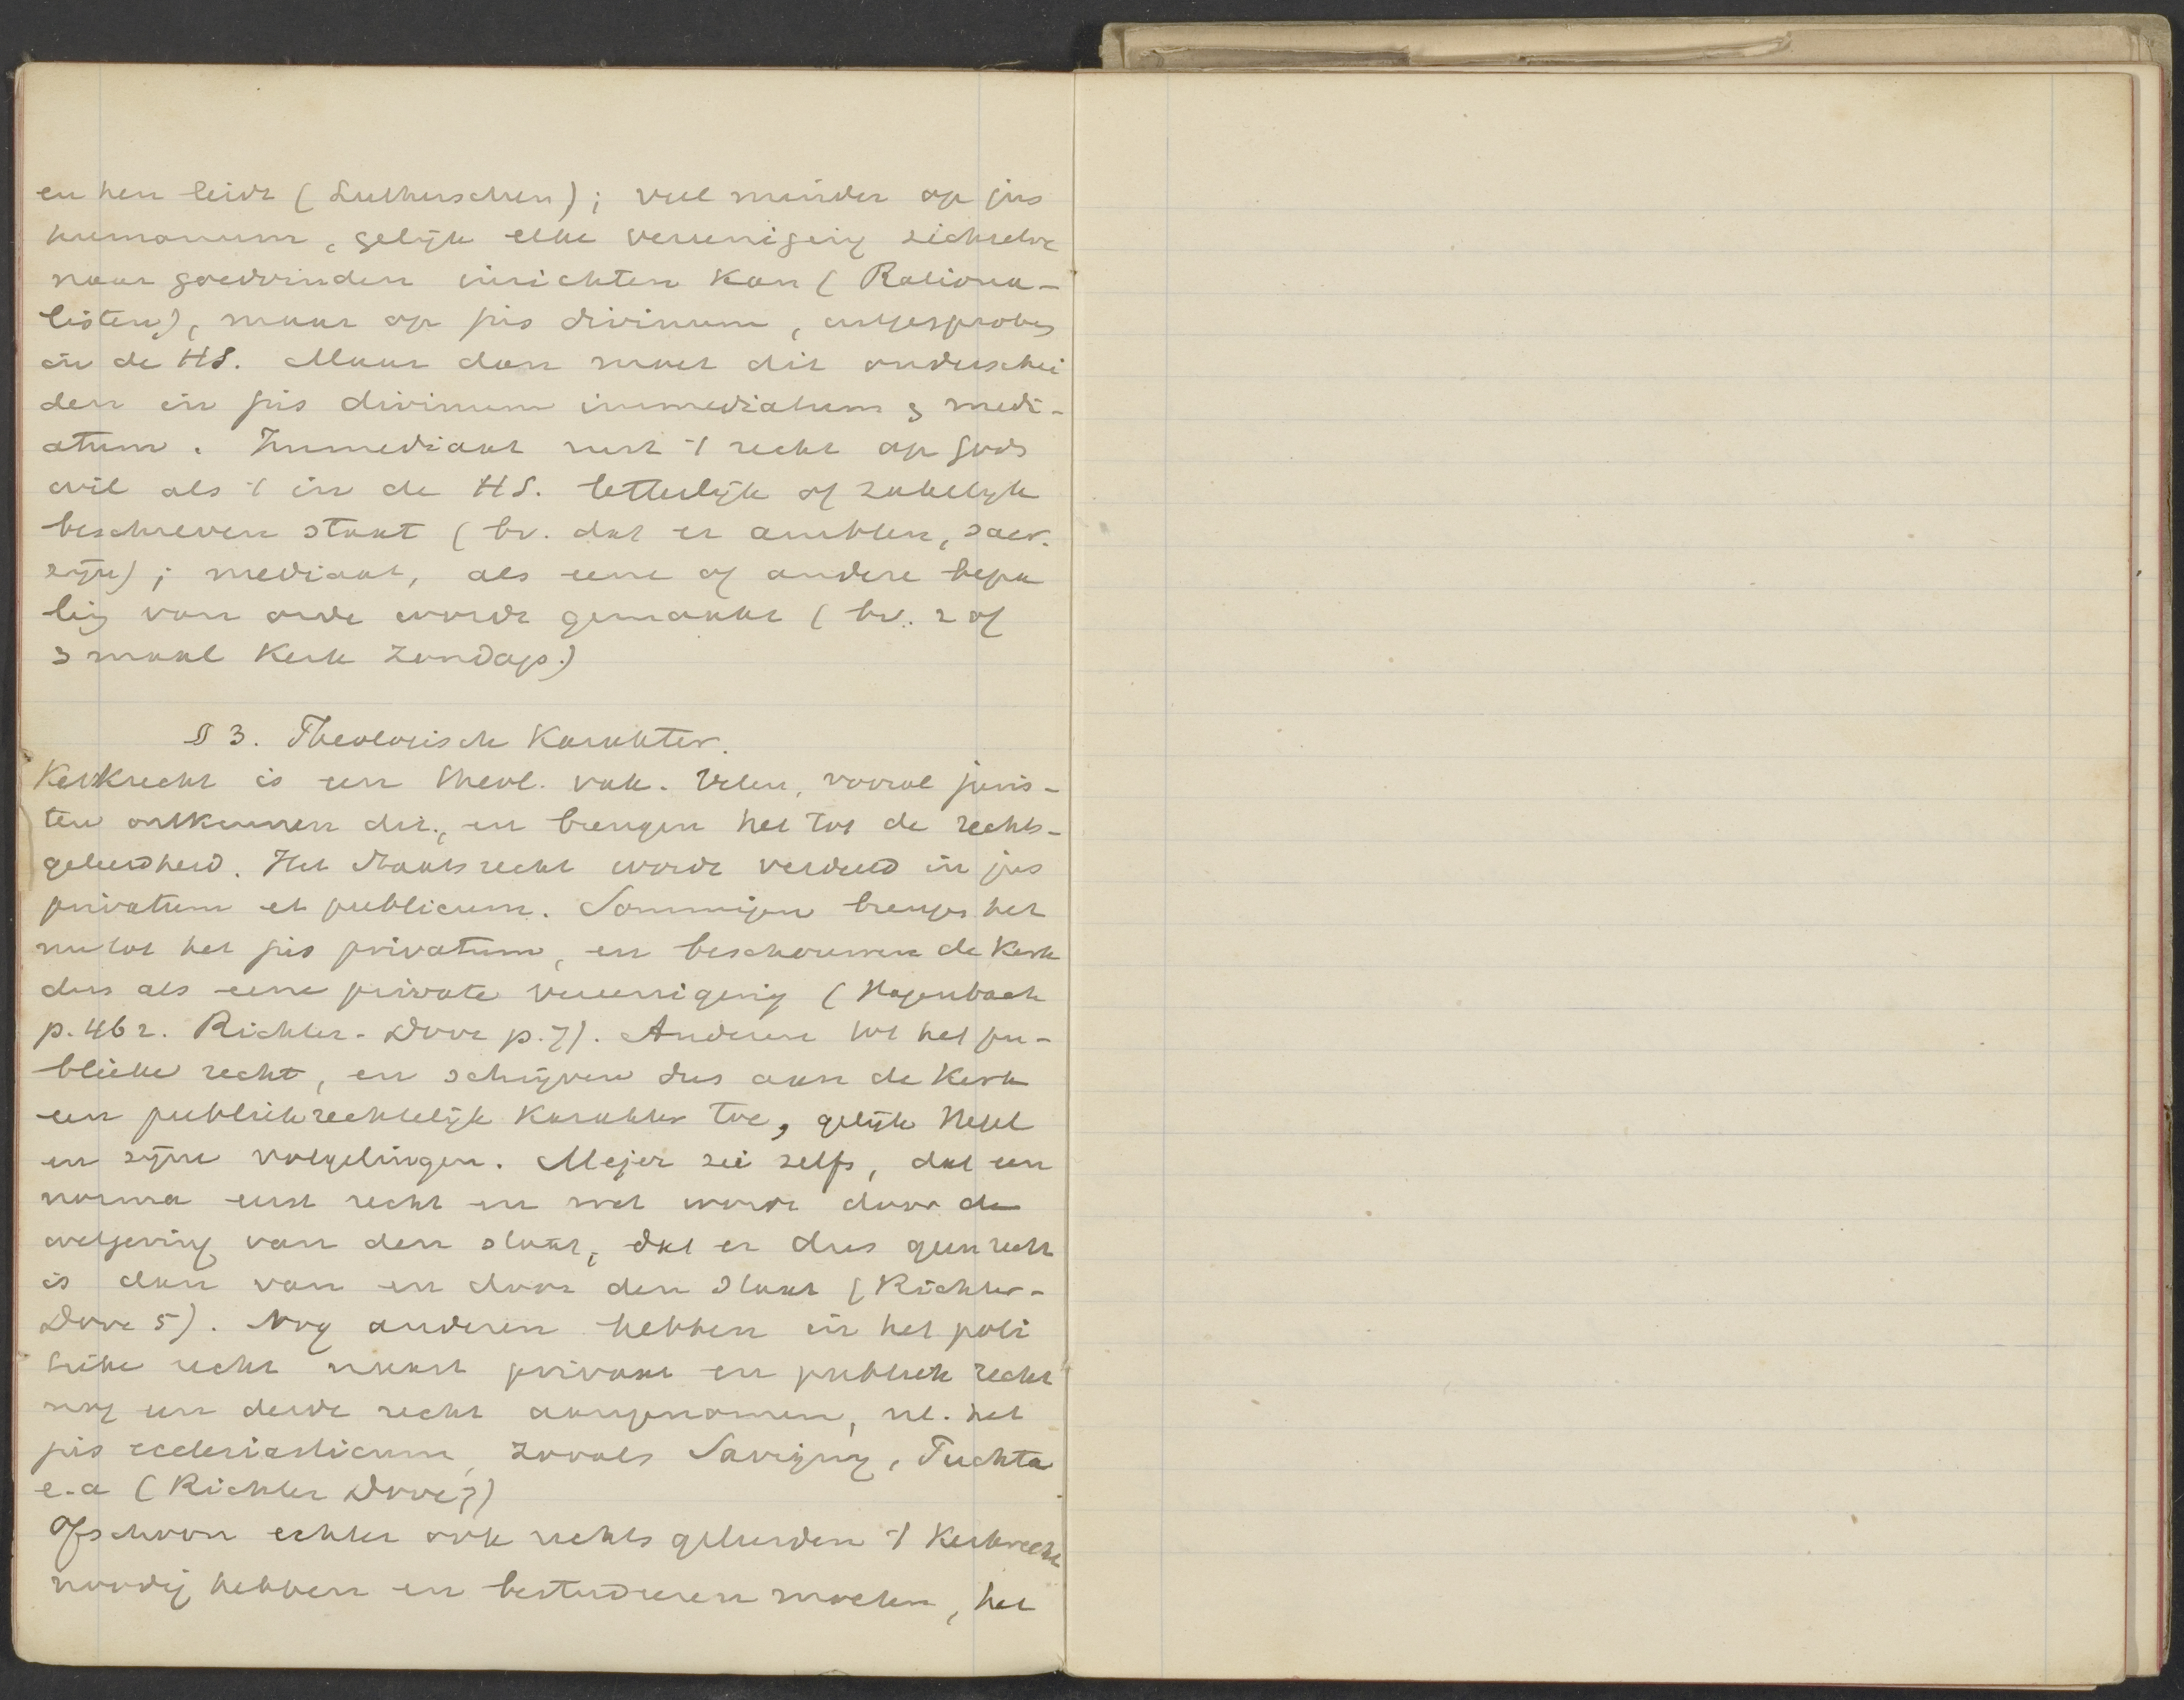 en hen leidt (Lutherschen); veel minder op jus
humanum, gelijk elke vereeniging zichzelve
naar goedvinden inrichten kan (Rationa-
listen), maar op jus divinum, uitgesproken
in de HS. Maar dan moet dit onderschei
den in jus divinum immediatum & medi-
atum. Immediaat rust 't recht op Gods
wil als 't in de HS. letterlijk of zakelijk
beschreven staat (bv. dat er ambten, sacr.
zijn); mediaat, als eene of andere bepa
ling van orde wordt gemaakt (bv. 2 of
3 maal Kerk Zondags.)
§ 3. Theologische Karakter.
Kerkrecht is een theol. vak. Velen, vooral juris-
ten ontkennen dit, en brengen het tot de rechts-
geleerdheid. Het staatsrecht wordt verdeeld in jus
privatum et publicum. Sommigen brengen het
nu tot het jus privatum, en beschouwen de Kerk
dus als eene private vereeniging (Hagenbach
p. 462. Richter-Dove p. 7). Anderen tot het pu-
blieke recht, en schrijven dus aan de Kerk
een publiekrechtelijk Karakter toe, gelijk Hegel
en zijne volgelingen. Mejer zei zelfs, dat een
norma eerst recht en wet wordt door de
wetgeving van den staat, dat er dus geen recht
is dan van en door den Staat (Richter-
Dove 5). Nog anderen hebben in het poli
tieke recht naast privaat en publiek recht
nog een derde recht aangenomen, nl. het
jus ecclesiasticum, zooals Savigny, Puchta
e.a (Richter Dove 7)
Ofschoon echter ook rechtsgeleerden 't Kerkrecht
noodig hebben en bestudeeren moeten, het